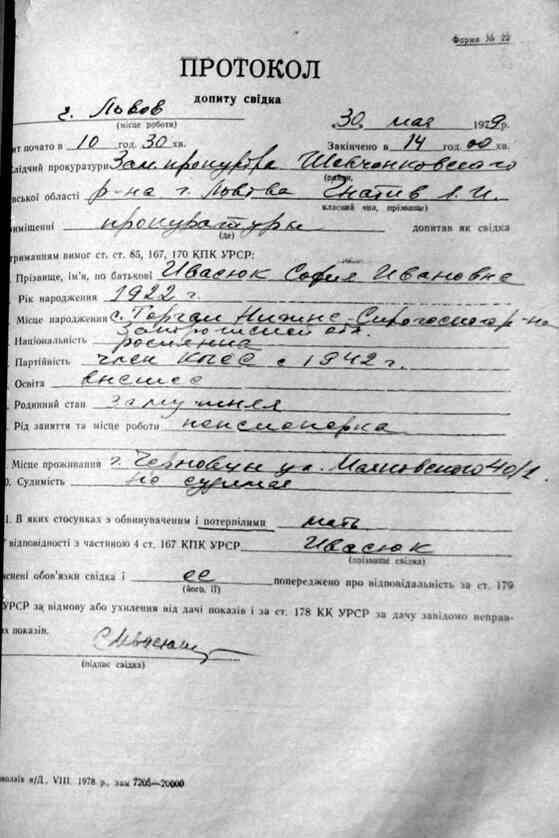 Форма № 22
ПРОТОКОЛ
допиту свідка
г. Львов „30 мая 1979р.
(місце роботи)
ит почато в 10 год. 30 хв. Закінчено в 14 год. 00 хв.
лідчий прокуратури Зам прокурора Шевченковского
(район,
вської області р-на г. Львова Гнатив Л.И.
класний чин, прізвище)
риміщенні прокуратуры допитав як свідка
(де)
отриманням вимог ст. ст. 85, 167, 170 КПК УРСР:
Прізвище, ім'я, по батькові Ивасюк София Ивановна
Рік народження 1922 г.
Місце народження с. Торгаи Нижне-Сирогозского р-на
Запорожской обл.
Національність росиянка
Партійність член КПСС с 1942 г.
Освіта высшее
Родинний стан замужняя
Рід заняття та місце роботи пенсионерка
Місце проживання г. Черновцы ул. Маяковского 40/1
0. Судимість не судимая
1. В яких стосунках з обвинуваченим і потерпілими мать
відповідності з частиною 4 ст. 167 КПК УРСР Ивасюк
(прізвище свідка)
яснені обов'язки свідка і ее попереджено про відповідальність за ст. 179
(його, її)
УРСР за відмову або ухилення від дачі показів і за ст. 178 КК УРСР за дачу завідомо неправ-
их показів.
СИвасюк
(підпис свідка)
в/Д, VIII. 1978 р., зам 7205—20000